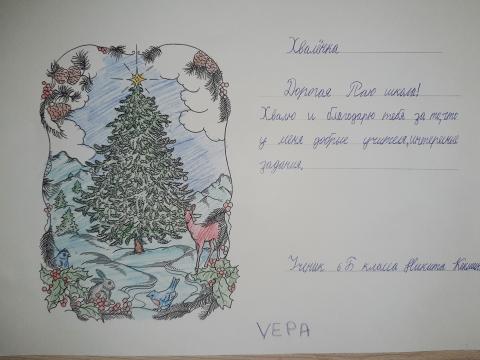 Хвалёнка
Дорогая моя школа!
Хвалю и благодарю тебя за то,что
у меня добрые учителя,интересные
задания.
Ученик 6 Б класса Никита
ВЕРА